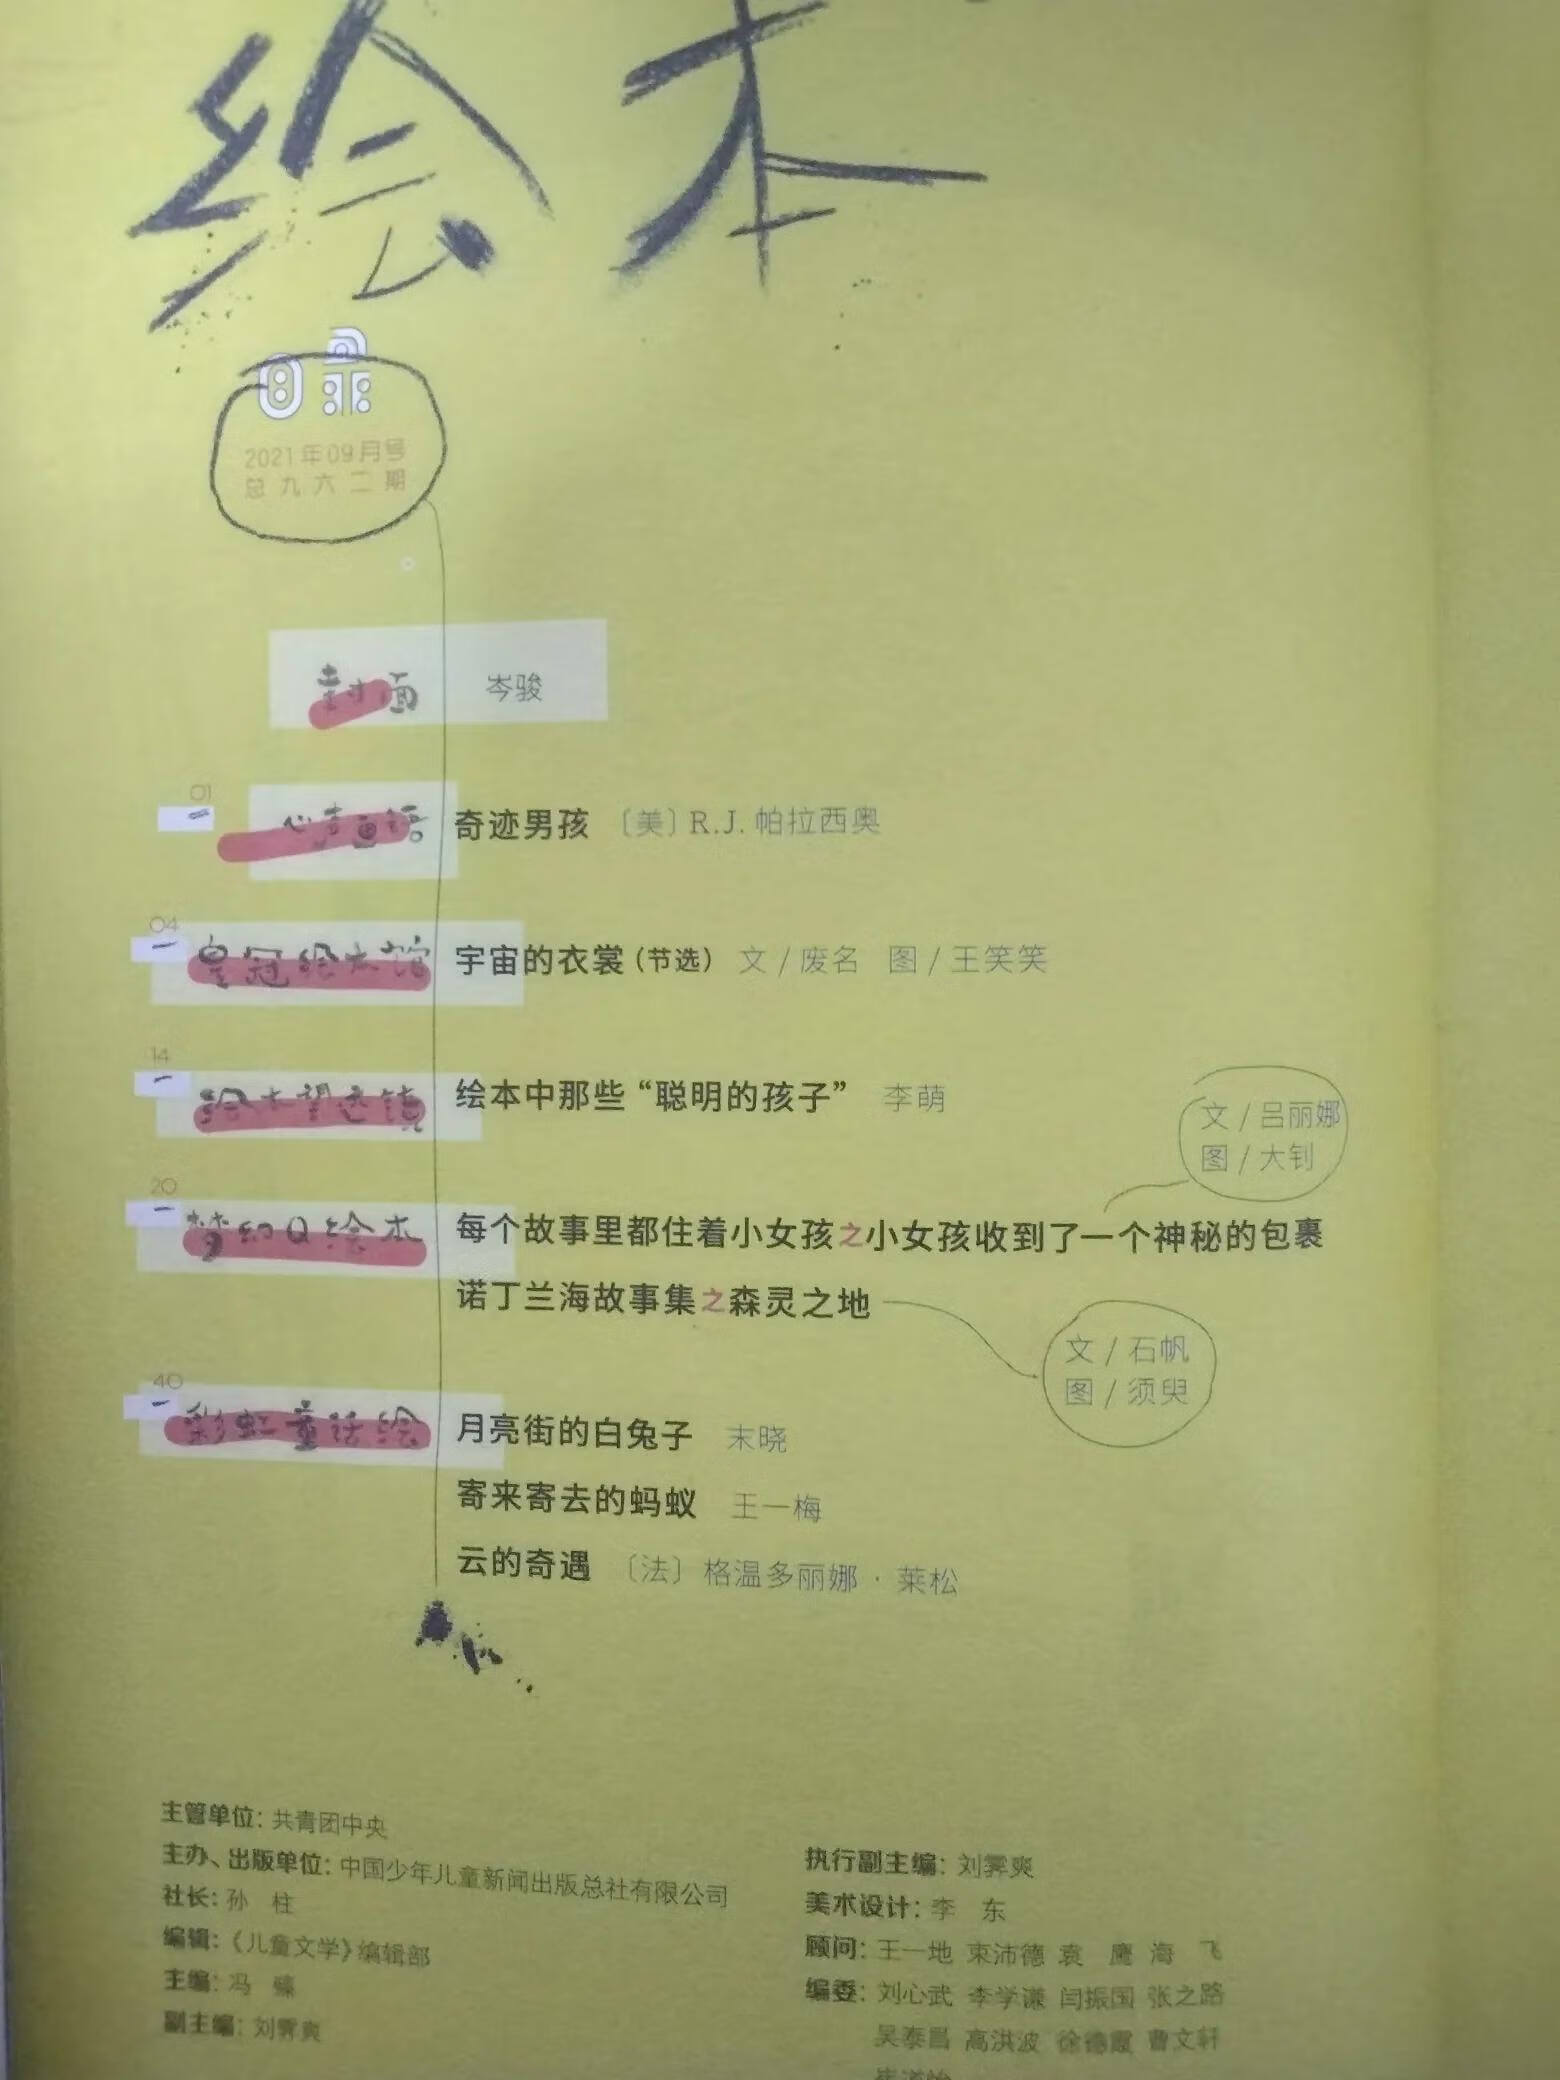 绘本
目录
2021年09月号
总九六二期
封面 岑骏
01
心声画语 奇迹男孩 〔美〕R.J.帕拉西奥
04
皇冠绘本馆 宇宙的衣裳（节选） 文/废名 图/王笑笑
14
绘本望远镜 绘本中那些“聪明的孩子” 李萌
文/吕丽娜
图/大钊
20
梦幻Q绘本 每个故事里都住着小女孩之小女孩收到了一个神秘的包裹
诺丁兰海故事集之森灵之地
文/石帆
图/须臾
40
彩虹童话绘 月亮街的白兔子 末晓
寄来寄去的蚂蚁 王一梅
云的奇遇 〔法〕格温多丽娜·莱松
主管单位：共青团中央
主办、出版单位：中国少年儿童新闻出版总社有限公司
社长：孙 柱
编辑：《儿童文学》编辑部
主编：冯 臻
副主编：刘霁爽
执行副主编：刘霁爽
美术设计：李 东
顾问：王一地 束沛德 袁 鹰 海 飞
编委：刘心武 李学谦 闫振国 张之路
吴泰昌 高洪波 徐德霞 曹文轩